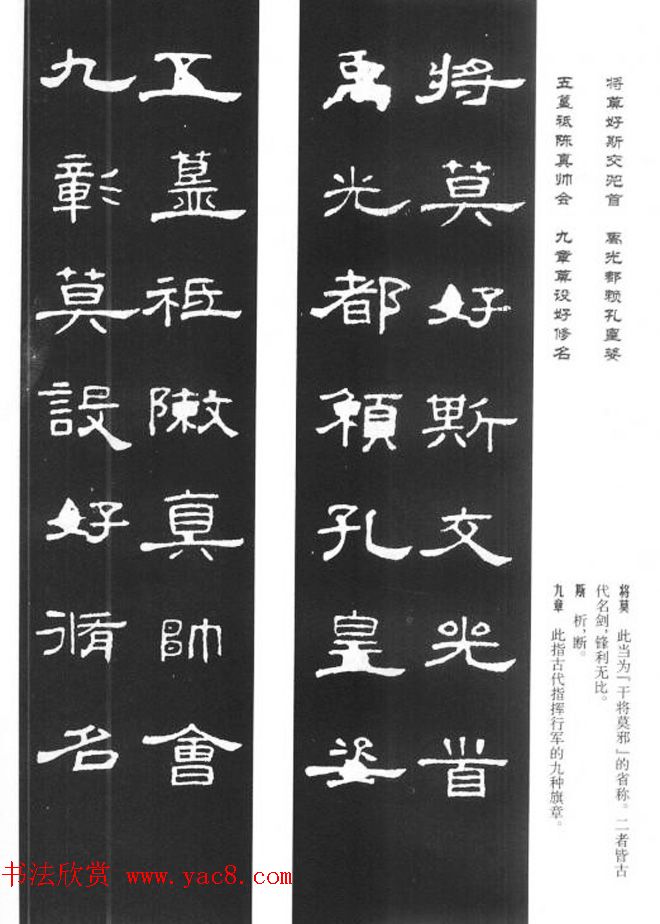 将莫好斯交兕首 禹光都赖孔皇姿
五墓祗陈真帅会 九章莫设好修名
將莫好斯交兕首
禹光都頼孔皇姿
五墓祗敶真帥會
九彰莫設好脩名
将莫 此当为「干将莫邪」的省称。二者皆古
代名剑,锋利无比。
斯 析,断。
九章 此指古代指挥行军的九种旗章。
书法欣赏 www.yac8.com